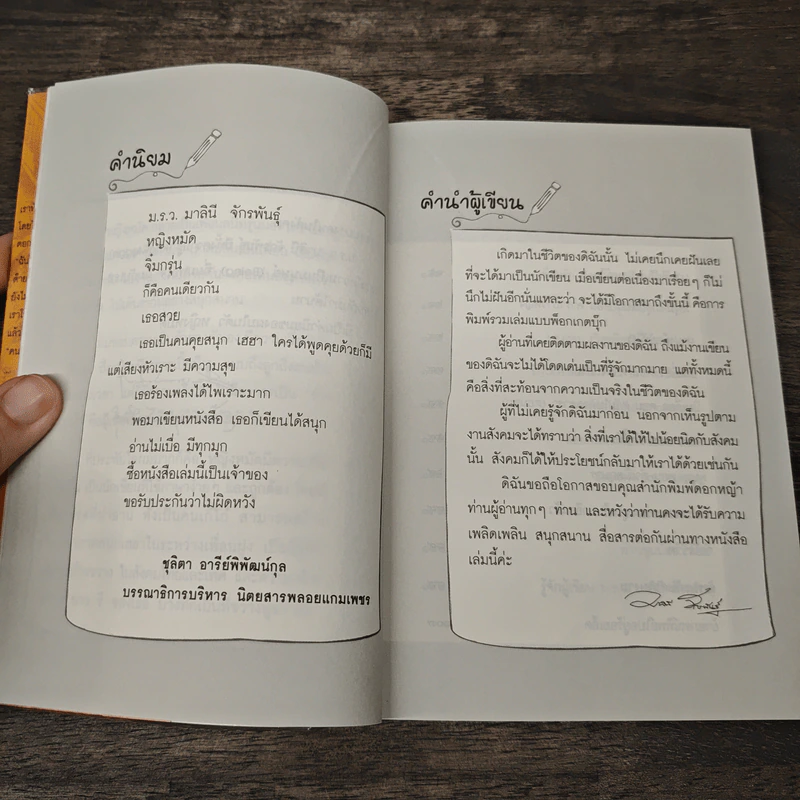 คำนิยม
ม.ร.ว. มาลินี จักรพันธุ์
หญิงหมัด
จิ๋มกรุ่น
ก็คือคนเดียวกัน
เธอสวย
เธอเป็นคนคุยสนุก เฮฮา ใครได้พูดคุยด้วยก็มี
แต่เสียงหัวเราะ มีความสุข
เธอร้องเพลงได้ไพเราะมาก
พอมาเขียนหนังสือ เธอก็เขียนได้สนุก
อ่านไม่เบื่อ มีทุกมุก
ซื้อหนังสือเล่มนี้เป็นเจ้าของ
ขอรับประกันว่าไม่ผิดหวัง
ชุลิตา อารีย์พิพัฒน์กุล
บรรณาธิการบริหาร นิตยสารพลอยแกมเพชร
คำนำผู้เขียน
เกิดมาในชีวิตของดิฉันนั้น ไม่เคยนึกเคยฝันเลย
ที่จะได้มาเป็นนักเขียน เมื่อเขียนต่อเนื่องมาเรื่อยๆ ก็ไม่
นึกไม่ฝันอีกนั่นแหละว่า จะได้มีโอกาสมาถึงขั้นนี้ คือการ
พิมพ์รวมเล่มแบบพ็อกเกตบุ๊ก
ผู้อ่านที่เคยติดตามผลงานของดิฉัน ถึงแม้งานเขียน
ของดิฉันจะไม่ได้โดดเด่นเป็นที่รู้จักมากมาย แต่ทั้งหมดนี้
คือสิ่งที่สะท้อนจากความเป็นจริงในชีวิตของดิฉัน
ผู้ที่ไม่เคยรู้จักดิฉันมาก่อน นอกจากเห็นรูปตาม
งานสังคมจะได้ทราบว่า สิ่งที่เราได้ให้ไปน้อยนิดกับสังคม
นั้น สังคมก็ได้ให้ประโยชน์กลับมาให้เราได้ด้วยเช่นกัน
ดิฉันขอถือโอกาสขอบคุณสำนักพิมพ์ดอกหญ้า
ท่านผู้อ่านทุกๆ ท่าน และหวังว่าท่านคงจะได้รับความ
เพลิดเพลิน สนุกสนาน สื่อสารต่อกันผ่านทางหนังสือ
เล่มนี้ค่ะ